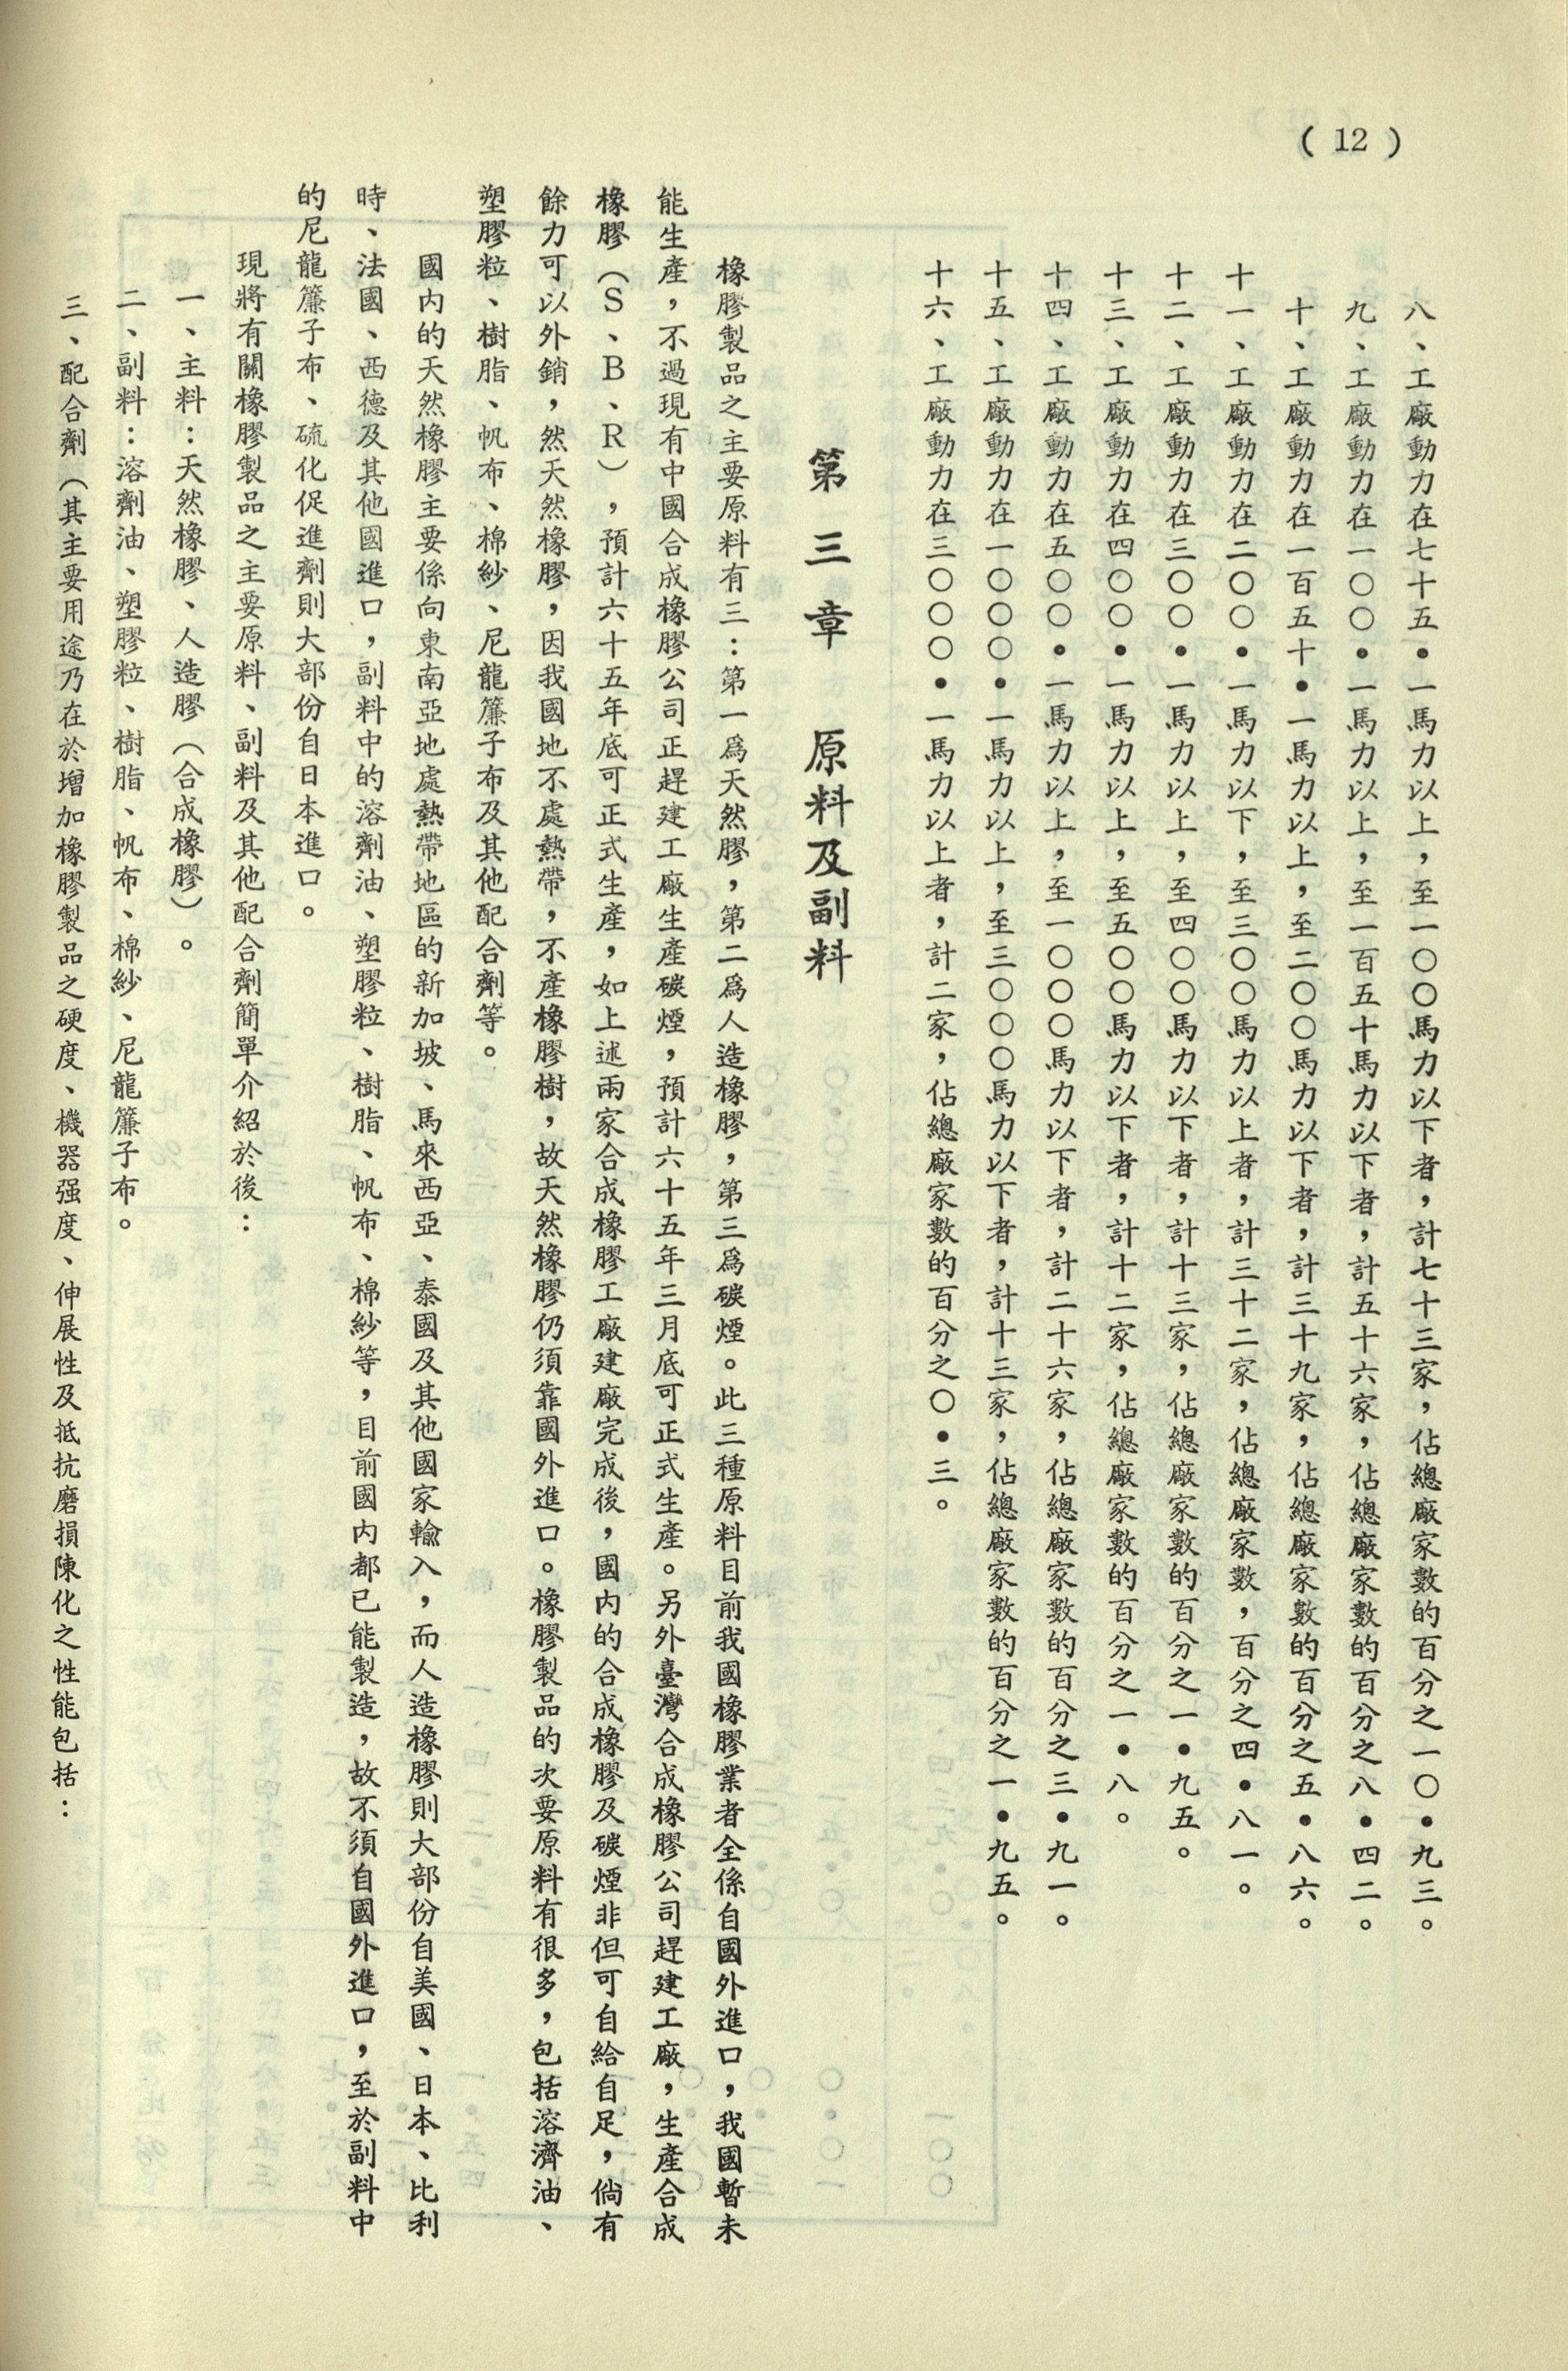 ( 12 )
八、工廠動力在七十五•一馬力以上,至一〇〇馬力以下者,計七十三家,佔總廠家數的百分之一〇•九三。
九、工廠動力在一〇〇•一馬力以上,至一百五十馬力以下者,計五十六家,佔總廠家數的百分之八•四二。
十、工廠動力在一百五十•一馬力以上,至二〇〇馬力以下者,計三十九家,佔總廠家數的百分之五•八六。
十一、工廠動力在二〇〇•一馬力以下,至三〇〇馬力以上者,計三十二家,佔總廠家數,百分之四•八一。
十二、工廠動力在三〇〇•一馬力以上,至四〇〇馬力以下者,計十三家,佔總廠家數的百分之一•九五。
十三、工廠動力在四〇〇•一馬力以上,至五〇〇馬力以下者,計十二家,佔總廠家數的百分之一•八。
十四、工廠動力在五〇〇•一馬力以上,至一〇〇〇馬力以下者,計二十六家,佔總廠家數的百分之三•九一。
十五、工廠動力在一〇〇〇•一馬力以上,至三〇〇〇馬力以下者,計十三家,佔總廠家數的百分之一•九五。
十六、工廠動力在三〇〇〇•一馬力以上者,計二家,佔總廠家數的百分之〇•三。
第三章 原料及副料
橡膠製品之主要原料有三:第一爲天然膠,第二爲人造橡膠,第三爲碳煙。此三種原料目前我國橡膠業者全係自國外進口,我國暫未
能生產,不過現有中國合成橡膠公司正趕建工廠生產碳煙,預計六十五年三月底可正式生產。另外臺灣合成橡膠公司趕建工廠,生產合成
橡膠(S、B、R),預計六十五年底可正式生產,如上述兩家合成橡膠工廠建廠完成後,國內的合成橡膠及碳煙非但可自給自足,倘有
餘力可以外銷,然天然橡膠,因我國地不處熱帶,不產橡膠樹,故天然橡膠仍須靠國外進口。橡膠製品的次要原料有很多,包括溶濟油、
塑膠粒、樹脂、帆布、棉紗、尼龍簾子布及其他配合劑等。
國內的天然橡膠主要係向東南亞地處熱帶地區的新加坡、馬來西亞、泰國及其他國家輸入,而人造橡膠則大部份自美國、日本、比利
時、法國、西德及其他國進口,副料中的溶劑油、塑膠粒、樹脂、帆布、棉紗等,目前國內都已能製造,故不須自國外進口,至於副料中
的尼龍簾子布、硫化促進劑則大部份自日本進口。
現將有關橡膠製品之主要原料、副料及其他配合劑簡單介紹於後:
一、主料:天然橡膠、人造膠(合成橡膠)。
二、副料:溶劑油、塑膠粒、樹脂、帆布、棉紗、尼龍簾子布。
三、配合劑(其主要用途乃在於增加橡膠製品之硬度、機器强度、伸展性及抵抗磨損陳化之性能包括: